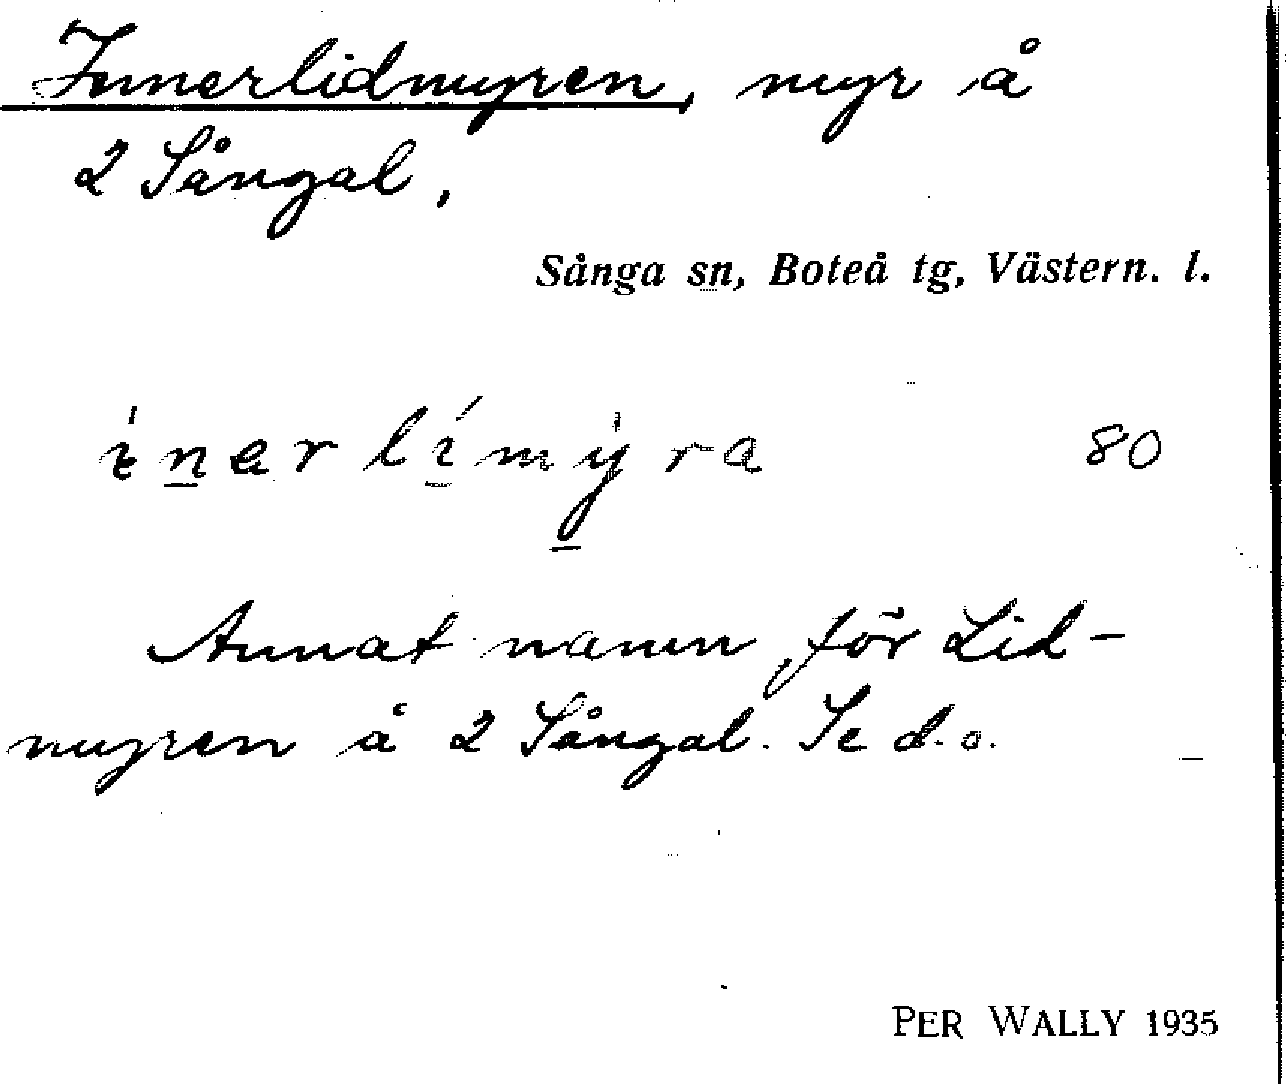 Innerlidmyren, myr å
2 Sångal,
Sånga sn, Boteå tg, Västern. l.
inerlimyra 80
Annat namn för Lid-
myren å 2 Sångal. Se d.o.
PER WALLY 1935